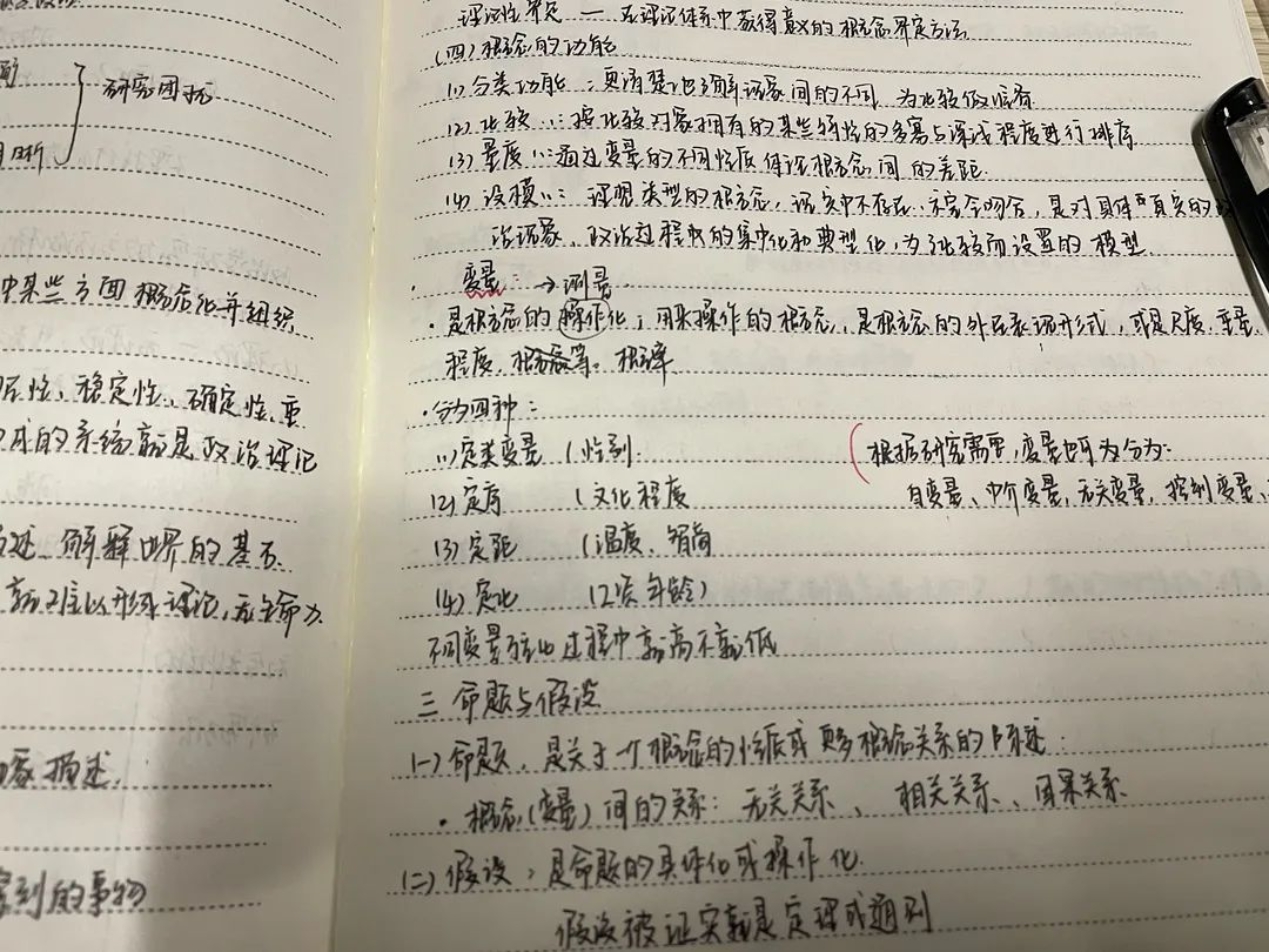 研究困扰
中某些方面概念化并组织
性、稳定性、确定性、重
成的系统就是政治理论
述、解释世界的基石
就难以形成理论,无生命力
象描述.
察到的事物
理论性界定 — 在理论体系中获得意义的概念界定方法
(四)概念的功能
(1) 分类功能:更清楚地了解现象间的不同 为比较做准备
(2) 比较〃:按比较对象拥有的某些特性的多寡与深浅程度进行排序
(3) 量度〃:通过变量的不同性质体现概念间的差距.
(4) 设模〃:理想类型的概念,现实中不存在、不完全吻合,是对具体真实的政
治现象、政治过程中的集中化和典型化,为了比较而设置的模型
变量:→测量.
·是概念的操作化;用来操作的概念,是概念的外在表现形式,或是尺度,重量,
程度,等。概率
·分为四种:
(1)定类变量 (性别.
(2)定序 (文化程度
(3)定距 (温度、智商
(4)定比 (2岁年龄)
不同变量转化过程中就高不就低
(根据研究需要,变量也可分为:
自变量、中介变量,无关变量,控制变量、
三 命题与假设
(一)命题,是关于一个概念的性质或更多概念关系的陈述.
·概念(变量)间的关系:无关关系、相关关系、因果关系
(二)假设,是命题的具体化或操作化.
假设被证实就是定理或通则